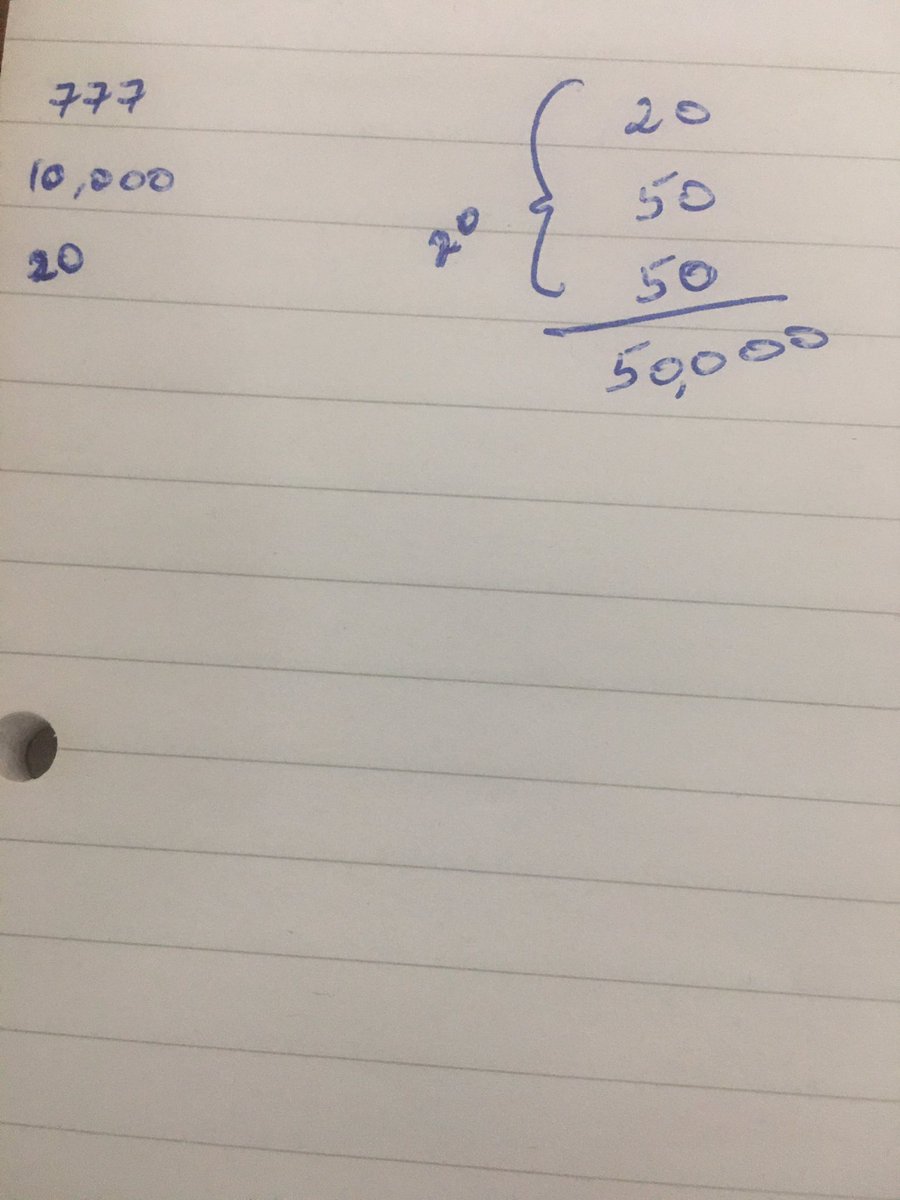 777
10,000
20
20
50
20
50
50,000